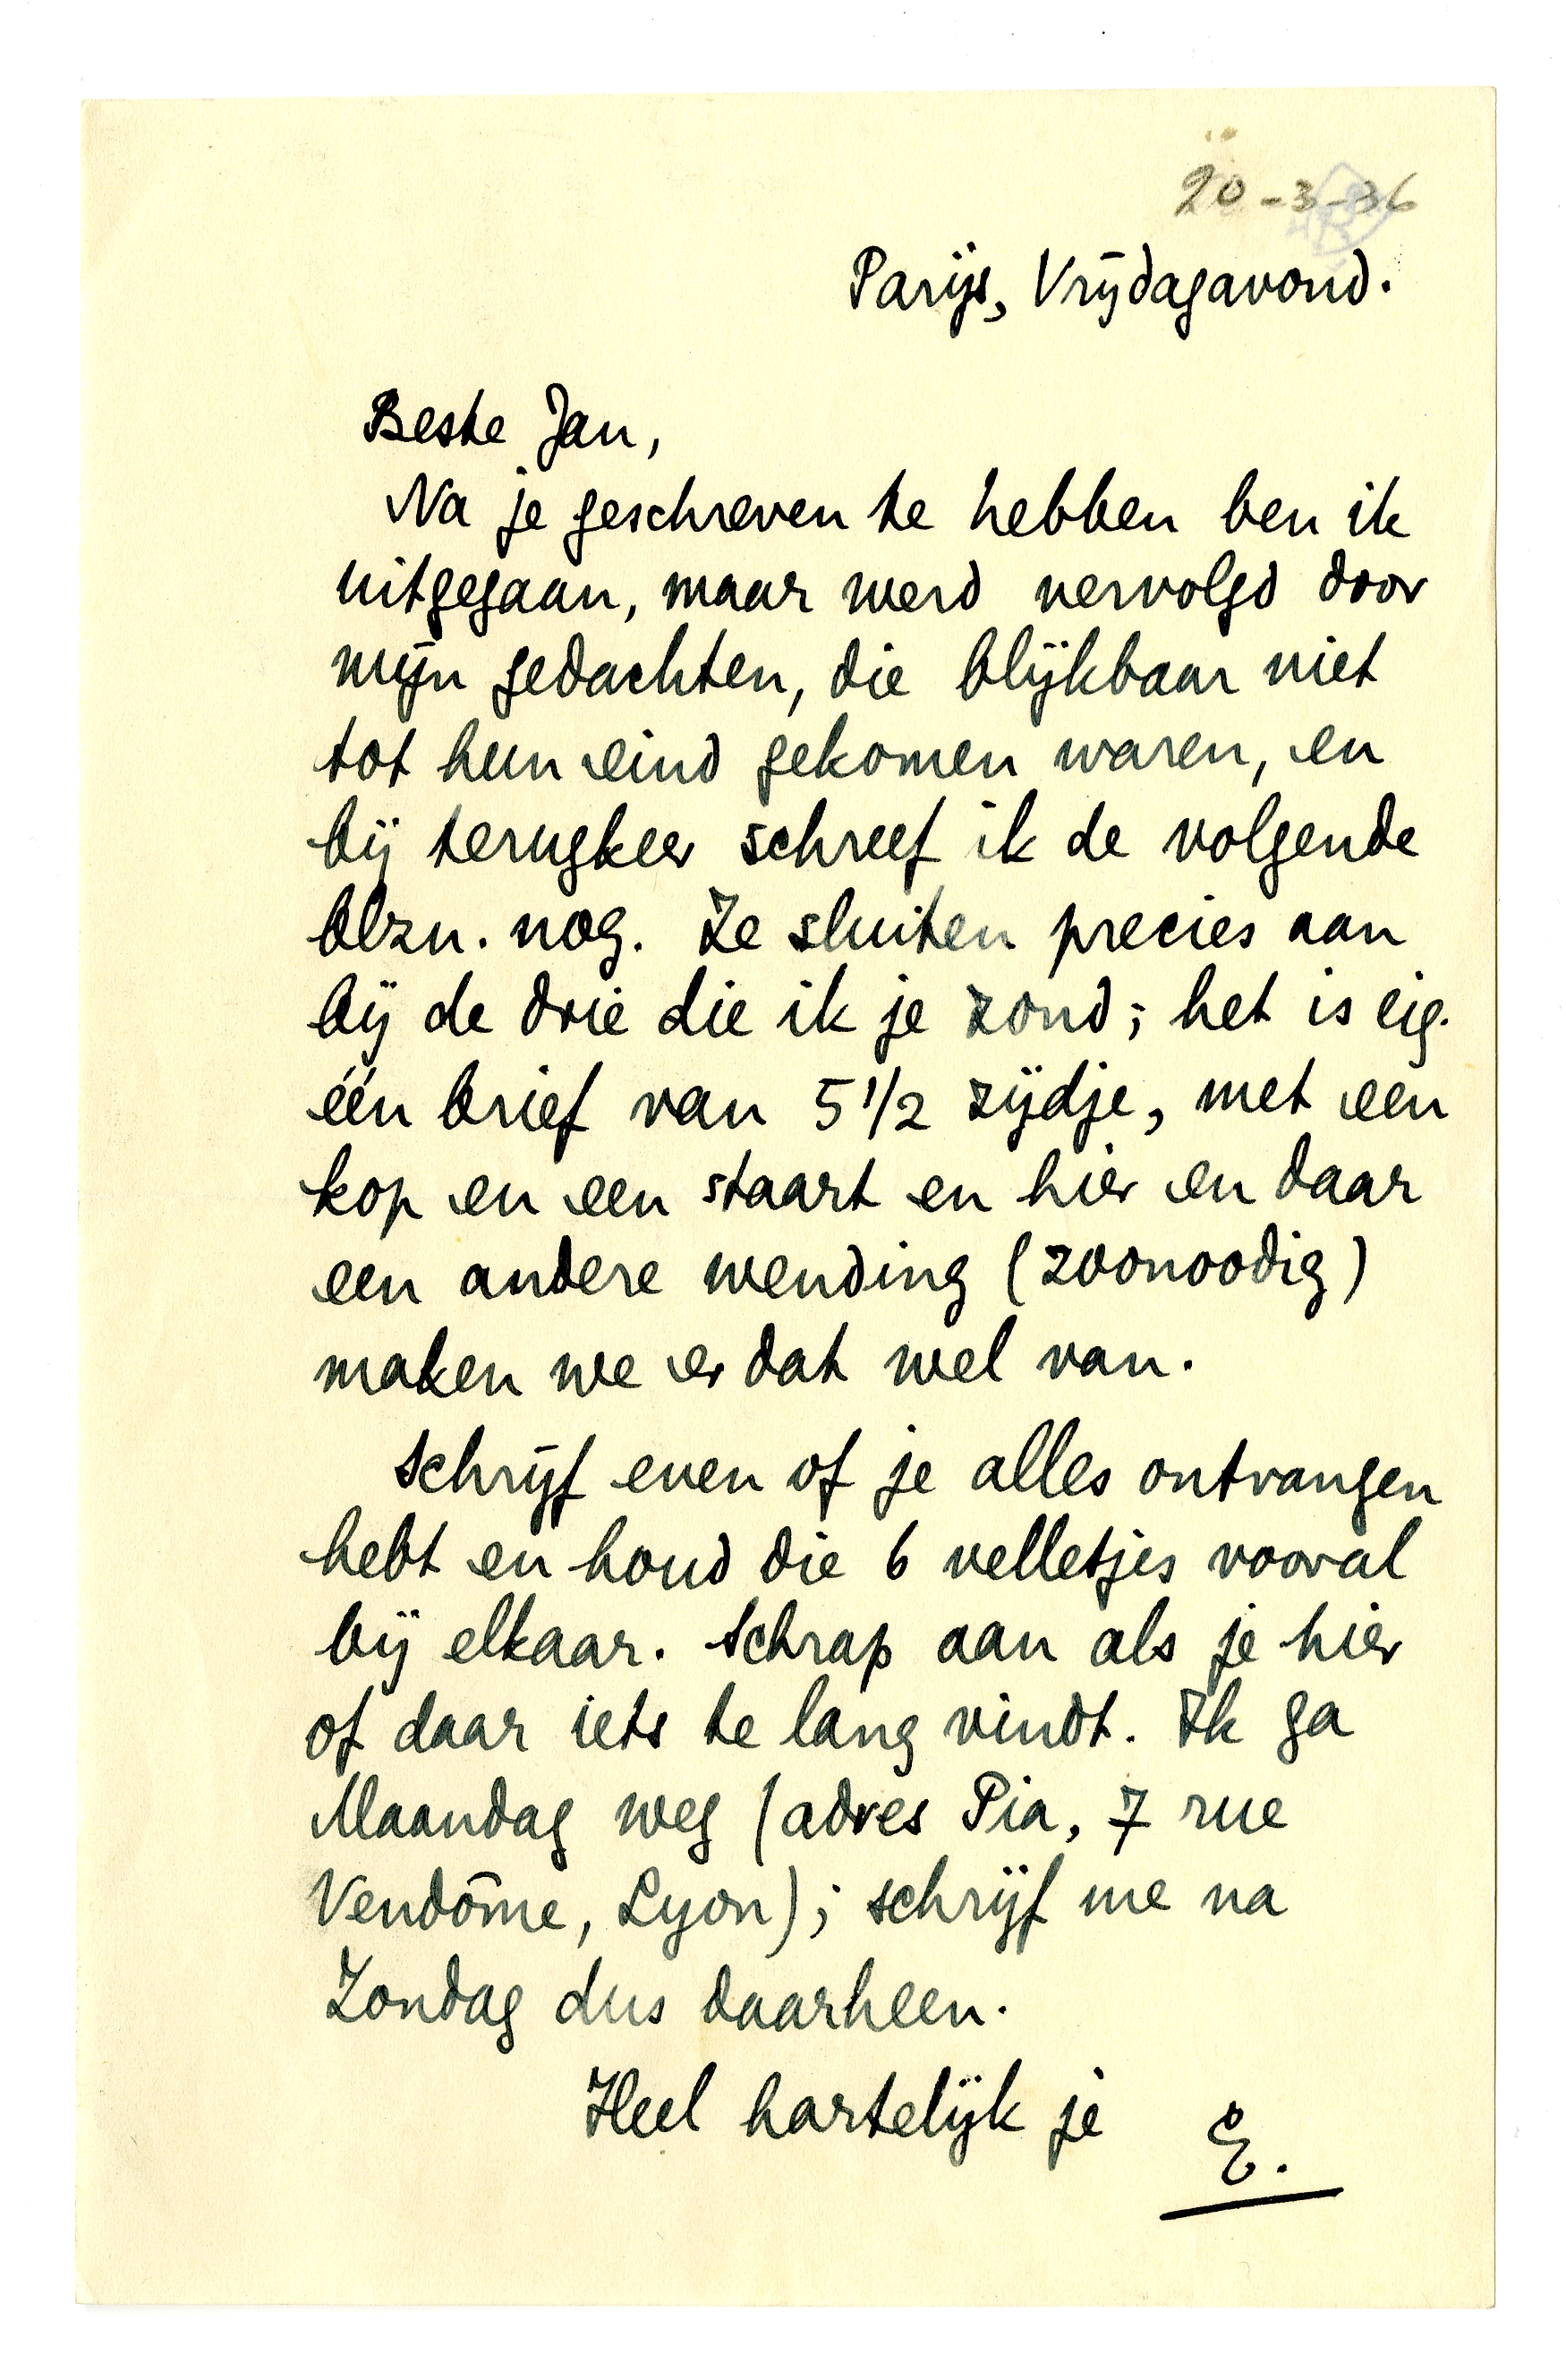 20-3-36
Parijs, Vrijdagavond.
Beste Jan,
Na je geschreven te hebben ben ik
uitgegaan, maar werd vervolgd door
mijn gedachten, die blijkbaar niet
tot hun eind gekomen waren, en
bij terugkeer schreef ik de volgende
blzn. nog. Ze sluiten precies aan
bij de drie die ik je zond; het is eig.
één brief van 5 1/2 zijdje, met een
kop en een staart en hier en daar
een andere wending (zoonoodig)
maken we er dat wel van.
Schrijf even of je alles ontvangen
hebt en houd die 6 velletjes vooral
bij elkaar. Schrap aan als je hier
of daar iets te lang vindt. Ik ga
Maandag weg (adres Pia, 7 rue
Vendôme, Lyon); schrijf me na
Zondag dus daarheen.
Heel hartelijk je
E.